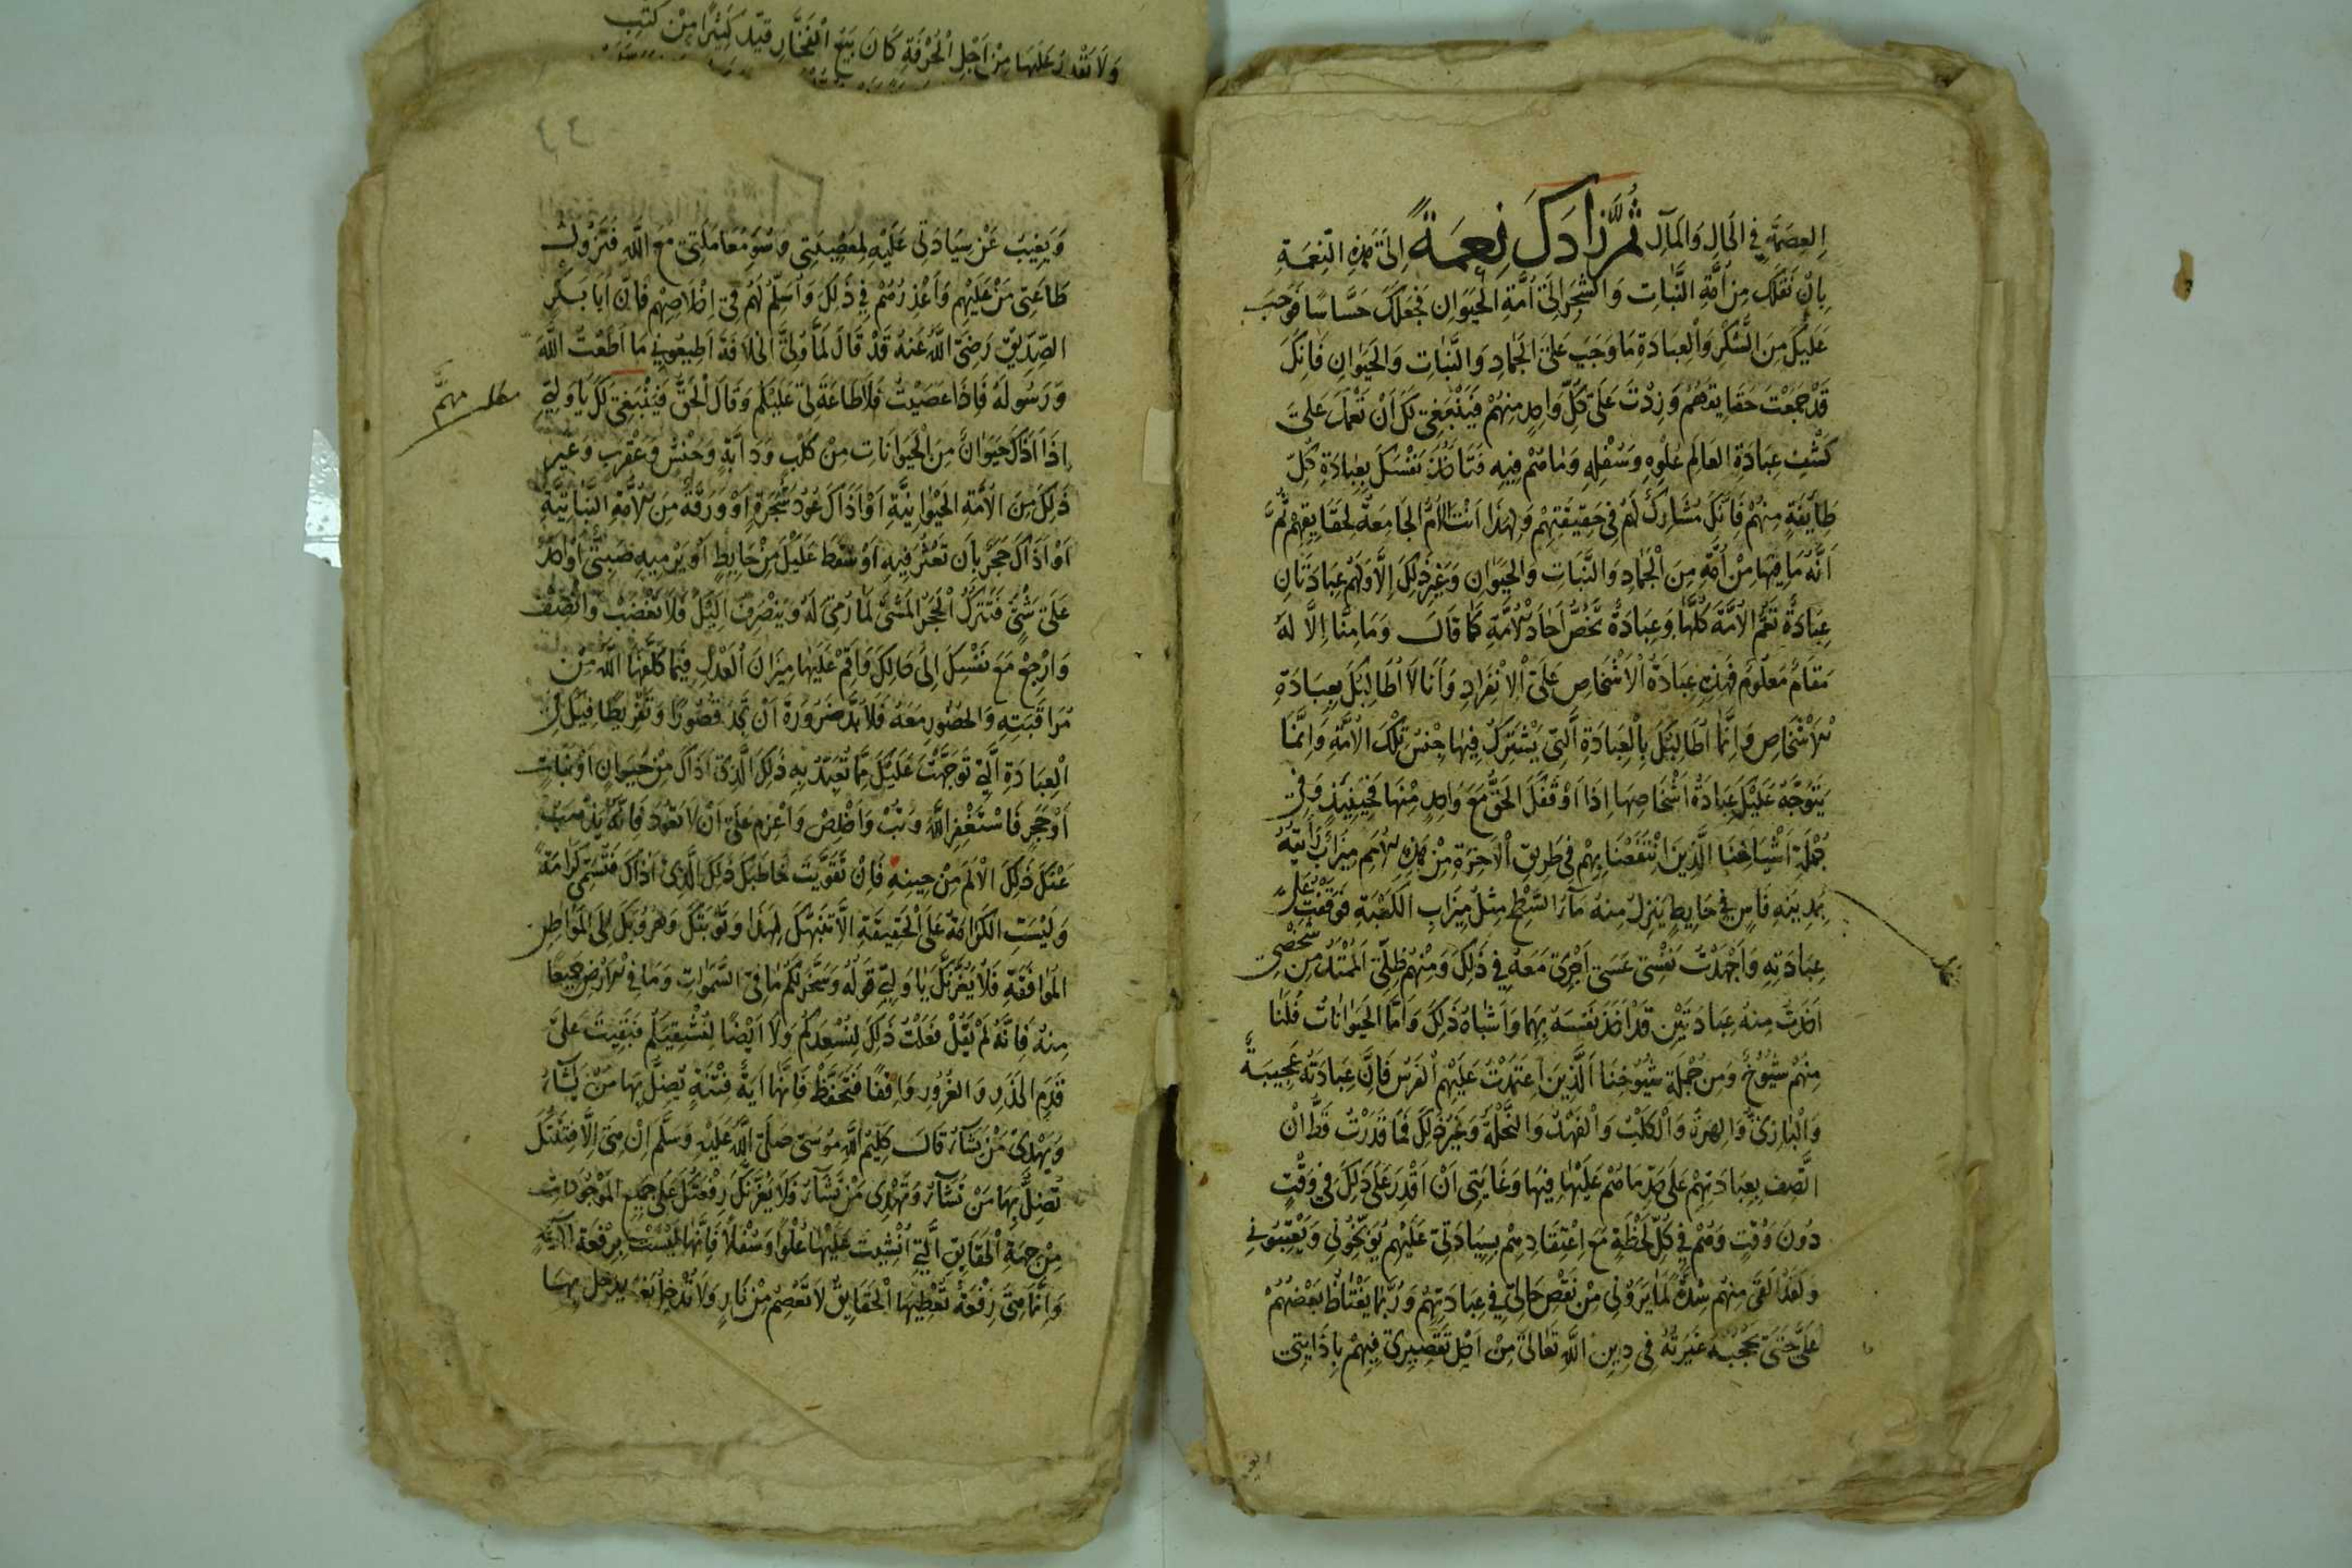 العِصمَةِ فِي الحَالِ وَالمَآلِ ثُمَّ زَادَكَ نِعمَةً اِلَىٰ هَذِهِ النِّعمَةِ
بِاَنْ نَقَلَكَ مِن اُمَّةِ النَّبَاتِ وَالشَّجَرِ اِلَىٰ اُمَّةِ الْحَيَوَانِ فَجَعَلَكَ حَسَّاسًا فَوَجَبَ
عَلَيكَ مِنَ الشُّكْرِ وَالعِبَادَةِ مَا وَجَبَ عَلَى الجَمَادِ وَالنَّبَاتِ وَالحَيَوَانِ فَاِنَّكَ
قَدْ جَمَعْتَ حَقَايِقَهُمْ وَزِدْتَ عَلَى كُلِّ وَاحِدٍ مِنهُمْ فَيَنْبَغِى لَكَ اَنْ تَعْمَلَ عَلىٰ
كَشْفِ عِبَادَةِ العَالَمِ عُلْوِهِ وَسُفْلِهِ وَمَا هُمْ فِيهِ فَتَاخُذَ نَفْسَكَ بِعِبَادَةِ كُلِّ
طَايِفَةٍ مِنْهُمْ فَاِنَّكَ مُشَارِكٌ لَهُمْ فِى حَقِيقَتِهِمْ وَلِهَذَا اَنْتَ الاُمُّ الجَامِعَةُ لِحَقَايِقِهِمْ ثُمَّ
اَنَّهُ مَا فِيهَا مِنْ اُمَّةٍ مِنَ الْجَمَادِ وَالنَّبَاتِ وَالحَيَوَانِ وَغَيْرِ ذَلِكَ اِلَّا وَلَهُمْ عِبَادَتَانِ
عِبَادَةٌ تَعُمُّ الاُمَّةَ كُلَّهَا وَعِبَادَةٌ تَخُصُّ اٰحَادَ الاُمَّةِ كَمَا قَالَ وَمَا مِنَّا اِلَّا لَهُ
مَقَامٌ مَعلُومٌ فَهَذِهِ عِبَادَةُ الْاَشْخَاصِ عَلَى الْاِنْفِرَادِ وَاَنَا لَا اُطَالِبُكَ بِعِبَادَةِ
الاَشْخَاصِ وَاِنَّمَا اُطَالِبُكَ بِالْعِبَادَةِ الَّتِى يَشْتَرِكُ فِيهَا جِنْسُ تِلْكَ الاُمَّةِ وَاِنَّمَا
يَتَوَجَّهُ عَلَيْكَ عِبَادَةُ اَشْخَاصِهَا اِذَا اَوْقَفَكَ الحَقُّ مَعَ وَاحِدٍ مِنْهَا فَحِينَئِذٍ وَمِنْ
جُمْلَةِ اَشْيَاخِنَا الَّذِينَ انْتَفَعْنَا بِهِمْ فِى طَرِيقِ الْاٰخِرَةِ مِنْ هَذِهِ الاُمَمِ مِيزَابٌ رَاَيْتُهُ
بِمَدِينَةِ فَاسٍ فِى حَايِطٍ يَنْزِلُ مِنهُ مَآءُ السَّطْحِ مِثْلَ مِيزَابِ الْكَعْبَةِ فَوَقَفْتُ عَلَى
عِبَادَتِهِ وَاَجْهَدْتُ نَفْسِى عَسَى اَجْرِى مَعَهُ فِى ذَلِكَ وَمِنْهُمْ ظِلِّىَ المُمْتَدُّ مِن شَخْصِى
اَخَذْتُ مِنهُ عِبَادَتَيْنِ قَدْ اَخَذَ نَفْسَهُ بِهِمَا وَاَشْبَاهُ ذَلِكَ وَاَمَّا الحَيَوَانَاتُ فَلَنَا
مِنْهُمْ شُيُوخٌ وَمِن جُمْلَةِ شُيُوخِنَا الَّذِينَ اعْتَمَدْتُ عَلَيْهِمُ الْفَرَسُ فَاِنَّ عِبَادَتَهُ عَجِيبَةٌ
وَالْبَازِىُّ وَالهِرَّةُ وَالْكَلْبُ وَالْفَهْدُ وَالنَّحْلَةُ وَغَيْرُ ذَلِكَ فَمَا قَدَرْتُ قَطُّ اَنْ
اَتَّصِفَ بِعِبَادَتِهِمْ عَلَى حَدِّ مَا هُمْ عَلَيْهَا فِيهَا وَغَايَتِى اَنْ اَقْدِرَ عَلَى ذَلِكَ فِى وَقْتٍ
دُونَ وَقْتٍ وَهُمْ فِى كُلِّ لَحْظَةٍ مَعَ اعْتِقَادِهِمْ بِسِيَادَتِى عَلَيْهِمْ يُوَبِّخُونِى وَيَعْتِبُونِى
وَلَقَدْ اَلْقَى مِنهُمْ شِدَّةً لِمَا يَرَوْنِى مِنْ نَقْصِ حَالِى فِى عِبَادَتِهِمْ وَرُبَّمَا يَغْتَاظُ بَعْضُهُمْ
عَلَىَّ حَتَّى تَحْجُبَهُ غَيْرَتُهُ فِى دِينِ اللهِ تَعَالَى مِنْ اَجْلِ تَقْصِيرِى فِيهِمْ بِاِذَايَتِى
وَلَا نَقْدِرُ عَلَيْهَا مِنْ اَجْلِ الْحُرْفَةِ كَانَ يَبِيعُ الْفَخَّارَ قَيَّدَ كَثِيرًا مِنْ كُتُبِ
وَيَغِيبَ عَنْ سِيَادَتِى عَلَيْهِ لِمَعْصِيَتِى وَسُوءِ مُعَامَلَتِى مَعَ اللهِ فَتَزُولُ
طَاعَتِى مِنْ عَلَيْهِمْ وَاَعْذِرُهُمْ فِى ذَلِكَ وَاُسَلِّمُ لَهُمْ فِى اِخْلَاصِهِمْ فَاِنَّ اَبَا بَكْرٍ
الصِّدِّيقَ رَضِىَ اللهُ عَنْهُ قَدْ قَالَ لَمَّا وُلِّىَ الْخِلَافَةَ اَطِيعُونِى مَا اَطَعْتُ اللهَ
وَرَسُولَهُ فَاِذَا عَصَيْتُ فَلَا طَاعَةَ لِى عَلَيْكُم وَقَالَ الْحَقَّ فَيَنْبَغِى لَكَ يَا وَلِيِّى
مطلب مهم
اِذَا اَذَاكَ حَيَوَانٌ مِنَ الْحَيَوَانَاتِ مِنْ كَلْبٍ وَدَابَّةٍ وَحَنَشٍ وَعَقْرَبٍ وَغَيْرِ
ذَلِكَ مِنَ الاُمَّةِ الحَيَوَانِيَّةِ اَوْ اَذَاكَ عُودُ شَجَرَةٍ اَوْ وَرَقَةٌ مِنَ الاُمَّةِ النَّبَاتِيَّةِ
اَوْ اَذَاكَ حَجَرٌ بِاَن تَعْثُرَ فِيهِ اَوْ سَقَطَ عَلَيْكَ مِنْ حَايِطٍ اَوْ يَرْمِيهِ صَبِىٌّ اَوْ اَحَدٌ
عَلَى شَىْءٍ فَتَرَكَ الْحَجَرُ الشَّىْءَ لِمَا رُمِىَ لَهُ وَيَنْصَرِفُ اِلَيْكَ فَلَا تَغْضَبْ وَانْصِفْ
وَارْجِعْ مَعَ نَفْسِكَ اِلَى حَالِكَ وَاَقِمْ عَلَيْهَا مِيزَانَ الْعَدْلِ فِيمَا كَلَّفَهَا اللهُ مِنْ
مُرَاقَبَتِهِ وَالحُضُورِ مَعَهُ فَلَا بُدَّ ضَرُورَةً اَنْ تَجِدَ قُصُورًا وَتَفْرِيطًا فِى تِلْكَ
الْعِبَادَةِ الَّتِى تَوَجَّهَتْ عَلَيْكَ مِمَّا تَعَبَّدَ بِهِ ذَلِكَ الَّذِى اَذَاكَ مِنْ حَيَوَانٍ اَوْ نَبَاتٍ
اَوْ حَجَرٍ فَاسْتَغْفِرِ اللهَ وَتُبْ وَاَخْلِصْ وَاعْزِم عَلَى اَنْ لَا تَعُودَ فَاِنَّهُ يَذْهَبُ
عَنْكَ ذَلِكَ الْاَلَمُ مِنْ حِينِهِ فَاِنْ تَقَوَّيْتَ خَاطَبَكَ ذَلِكَ الَّذِى اَذَاكَ فَتُسَمَّى كَرَامَةً
وَلَيْسَتِ الْكَرَامَةُ عَلَى الْحَقِيقَةِ اِلَّا تَنَبُّهُكَ لِهَذَا وَتَوْبَتُكَ وَهُرُوبُكَ اِلَى الْمَوَاطِنِ
المُوَافَقَةِ فَلَا يَغُرَّنَّكَ يَا وَلِيِّى قَوْلُهُ وَسَخَّرَ لَكُمْ مَا فِى السَّمَوَاتِ وَمَا فِى الاَرْضِ جَمِيعًا
مِنْهُ فَاِنَّهُ لَمْ يَقُلْ فَعَلْتُ ذَلِكَ لِنُسْعِدَكُم وَلَا اَيْضًا لِنُشْقِيَكُم فَبَقِيتَ عَلَى
قَدَمِ الحَذَرِ وَالغُرُورِ وَاقِفًا فَتَحَفَّظْ فَاِنَّهَا اٰيَةُ فِتْنَةٍ يُضِلُّ بِهَا مَنْ يَشَآءُ
وَيَهْدِى مَنْ يَشَآءُ قَالَ كَلِيمُ اللهِ مُوسَى صَلَّى اللهُ عَلَيْهِ وَسَلَّمَ اِنْ هِىَ اِلَّا فِتْنَتُكَ
تُضِلُّ بِهَا مَنْ تَشَآءُ وَتَهْدِى مَنْ تَشَآءُ وَلَا يَغُرَّنَّكَ رِفْعَتُكَ عَلَى جَمِيعِ المَوْجُودَاتِ
مِنْ جِهَةِ الْحَقَايِقِ الَّتِى اُنْشِيتَ عَلَيْهَا عُلْوًا وَسُفْلًا فَاِنَّهَا لَيْسَتْ بِرِفْعَةٍ
وَاِنَّمَا هِىَ رِفْعَةٌ تُعْطِيهَا الْحَقَايِقُ لَا تَعْصِمُ مِنْ نَارٍ وَلَا تُدْخِلُ